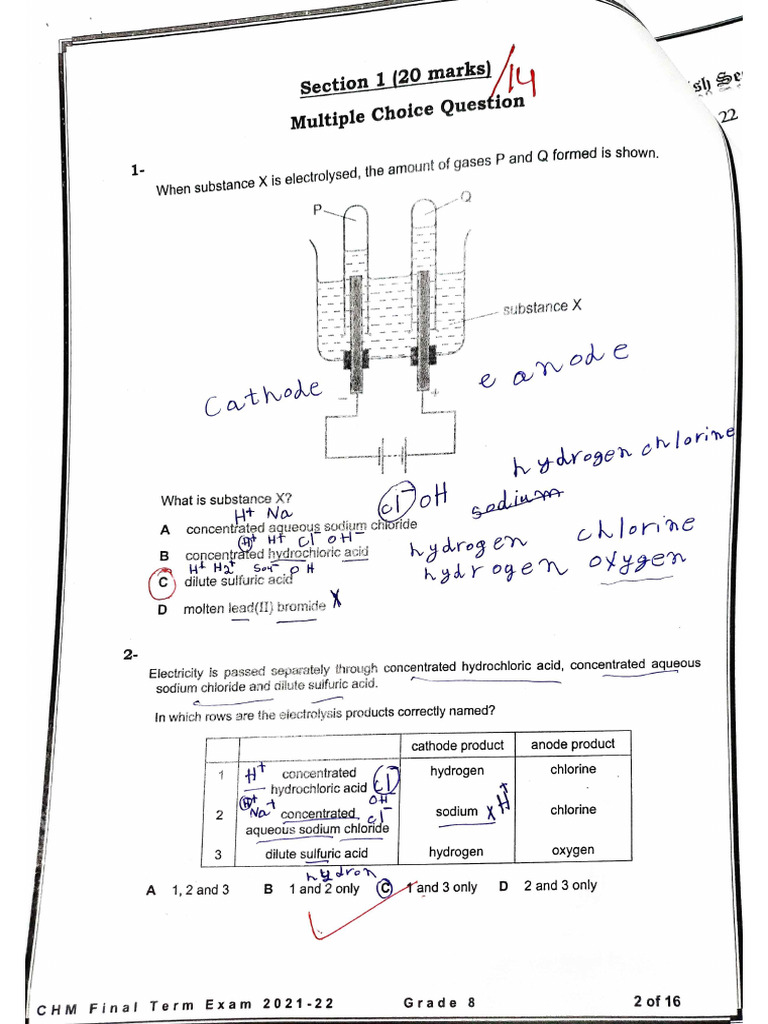 Section 1 (20 marks) /14
Multiple Choice Question
22
1-
When substance X is electrolysed, the amount of gases P and Q formed is shown.
P Q
substance X
Cathode e anode
− +
hydrogen chlorine
What is substance X? Cl⁻ OH sodium
H+ Na
A concentrated aqueous sodium chloride
H+ H+ Cl⁻ OH⁻ hydrogen chlorine
B concentrated hydrochloric acid
H+ H2+ SO4⁻ OH hydrogen oxygen
C dilute sulfuric acid
D molten lead(II) bromide X
2-
Electricity is passed separately through concentrated hydrochloric acid, concentrated aqueous
sodium chloride and dilute sulfuric acid.
In which rows are the electrolysis products correctly named?
cathode product anode product
1 H+ concentrated hydrochloric acid Cl⁻ hydrogen chlorine
H+ OH⁻
2 Na+ concentrated aqueous sodium chloride Cl⁻ sodium X H+ chlorine
3 dilute sulfuric acid hydrogen oxygen
hydron
A 1, 2 and 3 B 1 and 2 only C 1 and 3 only D 2 and 3 only
CHM Final Term Exam 2021-22 Grade 8 2 of 16